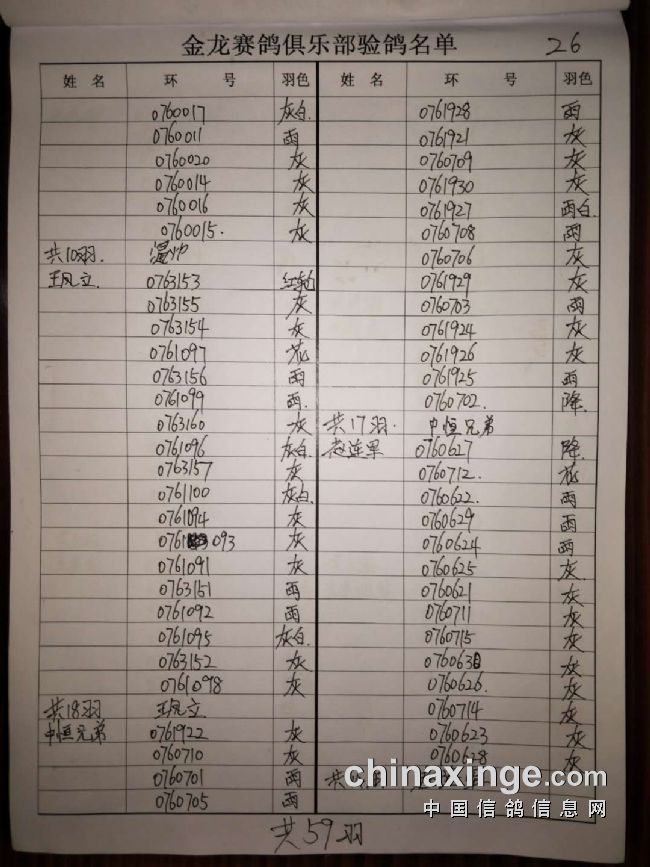 金龙赛鸽俱乐部验鸽名单 26
姓名 环号 羽色
0760017 灰白.
0760011 雨
0760020 灰
0760014 灰
0760016 灰
0760015. 灰
共10羽. 温帅
王凤立. 0763153 红轮
0763155 灰
0763154 灰
0761097 花
0763156 雨
0761099 雨.
0763160 灰
0761096 灰白.
0763157 灰
0761100 灰白.
0761094 灰
0761093 灰
0761091 灰
0763151 雨
0761092 雨
0761095 灰白.
0763152 灰
0761098 灰
共18羽 王凤立
中恒兄弟 0761922 灰
0760710 灰
0760701 雨
0760705 雨
姓名 环号 羽色
0761928 雨
0761921 灰
0760709 灰
0761930 灰
0761927 雨白.
0760708 雨
0760706 灰
0761929 灰
0760703 雨
0761924 灰
0761926 灰
0761925 雨
0760702. 降.
共17羽. 中恒兄弟
赵连军 0760627 降.
0760712. 花
0760622. 雨
0760629 雨
0760624 雨
0760625 灰
0760621 灰
0760711 灰
0760715 灰
0760630 灰
0760626. 灰
0760714 灰
0760623 灰
0760628 灰
共
共59羽
chinaxinge.com
中国信鸽信息网